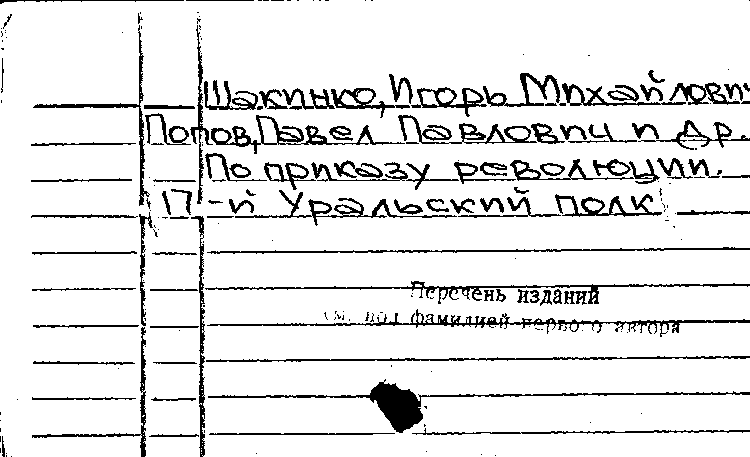 Шакинко, Игорь Михайлович
Попов, Павел Павлович и др.
По приказу революции.
17-й Уральский полк
Перечень изданий
см. под фамилией первого автора